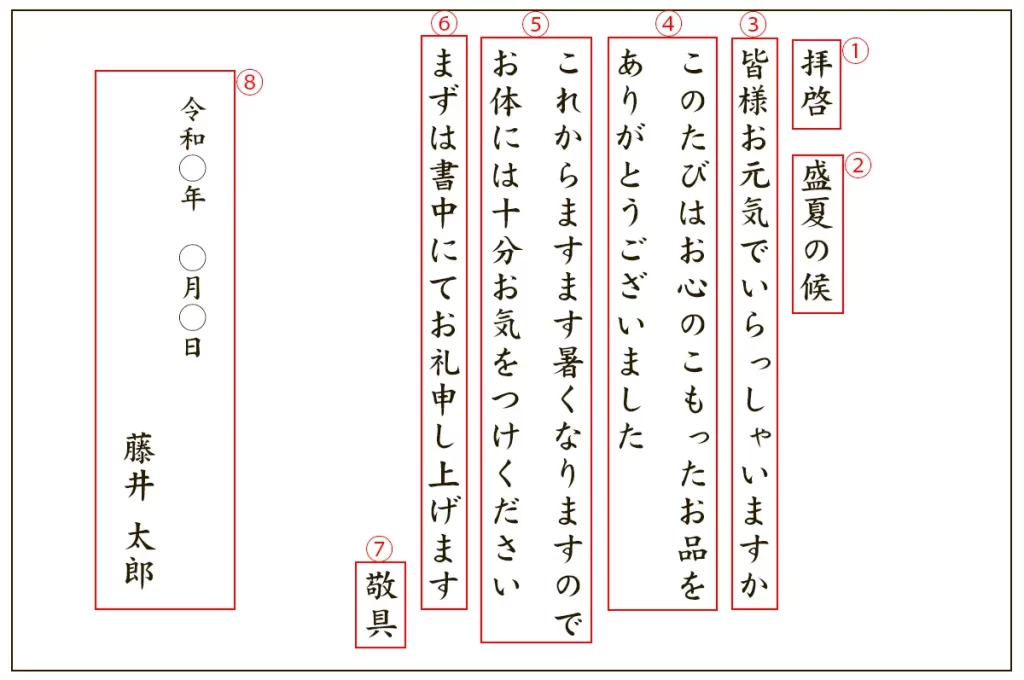 ① 拝啓
② 盛夏の候
③ 皆様お元気でいらっしゃいますか
④ このたびはお心のこもったお品を
ありがとうございました
⑤ これからますます暑くなりますので
お体には十分お気をつけください
⑥ まずは書中にてお礼申し上げます
⑦ 敬具
⑧ 令和〇年 〇月〇日
藤井 太郎